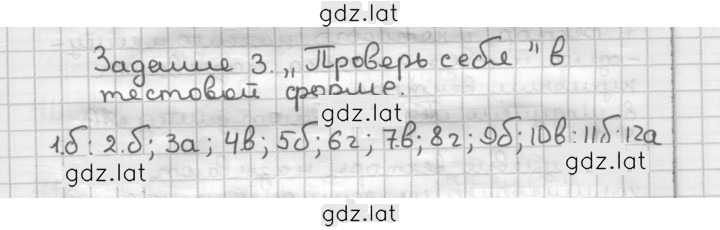 gdz.lat
Задание 3. „Проверь себе" в
тестовой форме.
gdz.lat
1.б: 2.б; 3а; 4.в; 5б; 6г; 7.в; 8г; 9б; 10в: 11б. 12а
gdz.lat
gdz.lat
gdz.lat